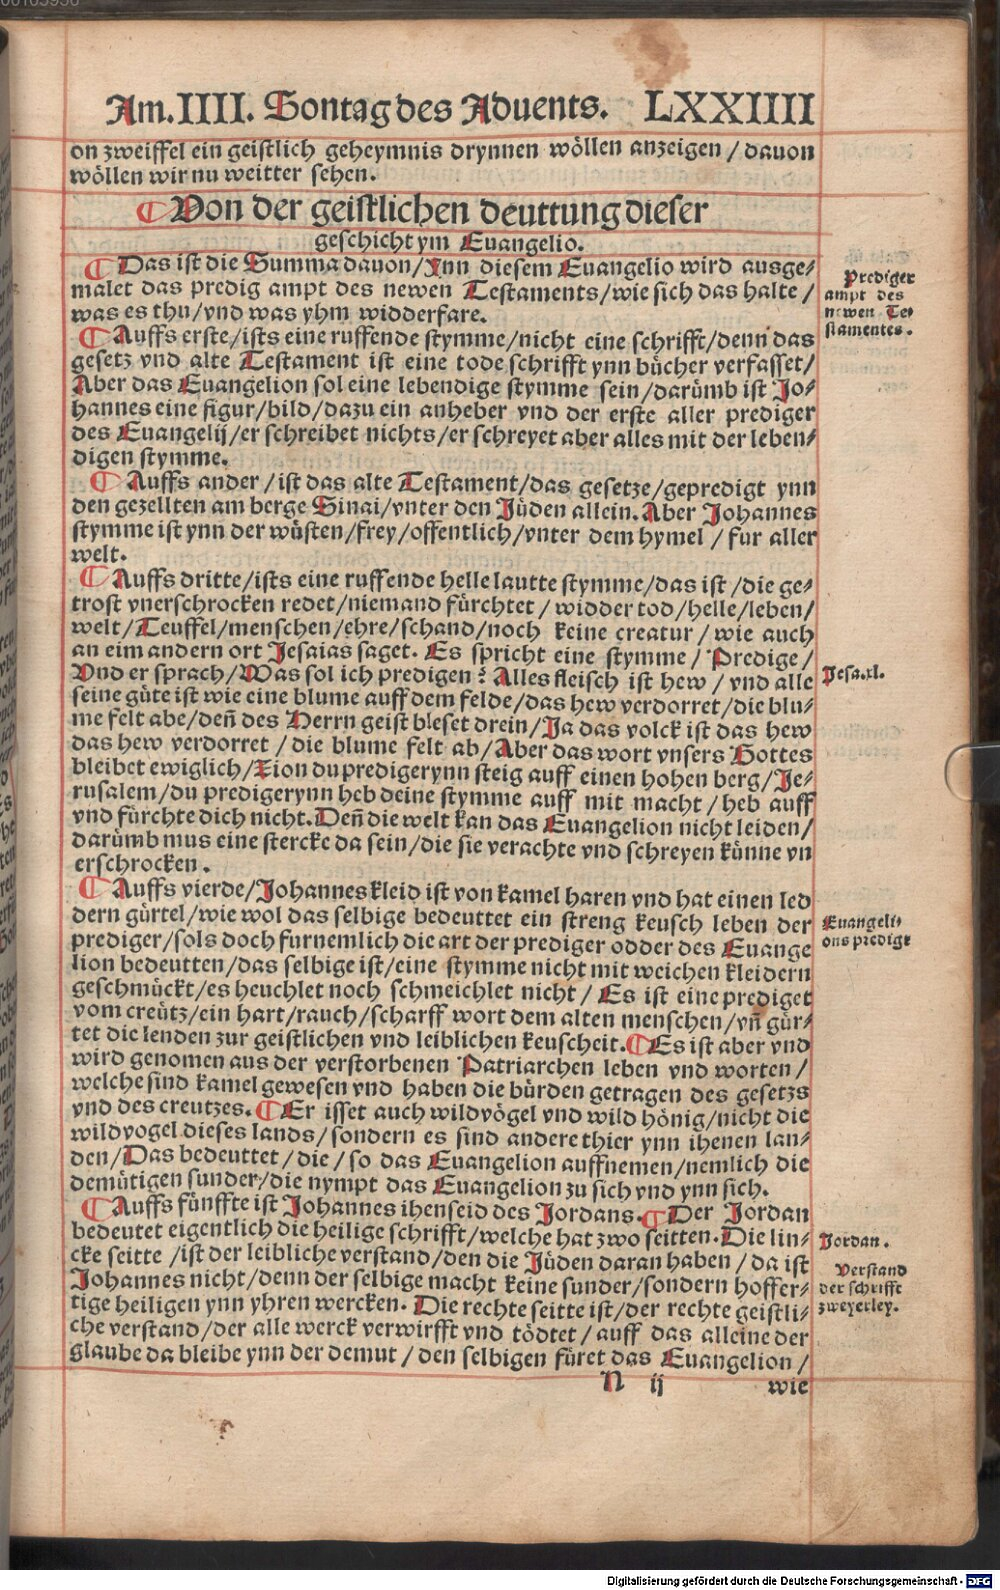 Am. IIII. Sontag des Aduents. LXXIIII
on zweiffel ein geistlich geheymnis drynnen wöllen anzeigen / dauon
wöllen wir nu weitter sehen.
¶ Von der geistlichen deuttung dieser
geschicht ym Euangelio.
¶ Das ist die Summa dauon / Inn diesem Euangelio wird ausge-
malet das predig ampt des newen Testaments / wie sich das halte /
was es thu / vnd was yhm widderfare.
Prediger
ampt des
newen Te-
stamentes.
¶ Auffs erste / ists eine ruffende stymme / nicht eine schrifft / denn das
gesetz vnd alte Testament ist eine tode schrifft ynn bücher verfasset /
Aber das Euangelion sol eine lebendige stymme sein / darümb ist Jo-
hannes eine figur / bild / dazu ein anheber vnd der erste aller prediger
des Euangelij / er schreibet nichts / er schreyet aber alles mit der leben-
digen stymme.
¶ Auffs ander / ist das alte Testament / das gesetze / gepredigt ynn
den gezellten am berge Sinai / vnter den Jüden allein. Aber Johannes
stymme ist ynn der wüsten / frey / offentlich / vnter dem hymel / fur aller
welt.
¶ Auffs dritte / ists eine ruffende helle lautte stymme / das ist / die ge-
trost vnerschrocken redet / niemand fürchtet / widder tod / helle / leben /
welt / Teuffel / menschen / ehre / schand / noch keine creatur / wie auch
an eim andern ort Jesaias saget. Es spricht eine stymme / Predige /
Vnd er sprach / Was sol ich predigen? Alles fleisch ist hew / vnd alle
Jesa.xl.
seine güte ist wie eine blume auff dem felde / das hew verdorret / die blu-
me felt abe / deñ des Herrn geist bleset drein / Ja das volck ist das hew
das hew verdorret / die blume felt ab / Aber das wort vnsers Gottes
bleibet ewiglich / Zion du predigerynn steig auff einen hohen berg / Je-
rusalem / du predigerynn heb deine stymme auff mit macht / heb auff
vnd fürchte dich nicht. Deñ die welt kan das Euangelion nicht leiden /
darümb mus eine stercke da sein / die sie verachte vnd schreyen künne vn
erschrocken.
¶ Auffs vierde / Johannes kleid ist von kamel haren vnd hat einen led
dern gürtel / wie wol das selbige bedeuttet ein streng keusch leben der
prediger / sols doch furnemlich die art der prediger odder des Euange
Euangeli-
ons predigt
lion bedeutten / das selbige ist / eine stymme nicht mit weichen kleidern
geschmückt / es heuchlet noch schmeichlet nicht / Es ist eine prediget
vom creütz / ein hart / rauch / scharff wort dem alten menschen / vñ gür-
tet die lenden zur geistlichen vnd leiblichen keuscheit. ¶ Es ist aber vnd
wird genomen aus der verstorbenen Patriarchen leben vnd worten /
welche sind kamel gewesen vnd haben die bürden getragen des gesetzs
vnd des creutzes. ¶ Er isset auch wildvögel vnd wild hönig / nicht die
wildvogel dieses lands / sondern es sind andere thier ynn ihenen lan-
den / Das bedeuttet / die / so das Euangelion auffnemen / nemlich die
demütigen sunder / die nympt das Euangelion zu sich vnd ynn sich.
¶ Auffs fünffte ist Johannes ihenseid des Jordans. ¶ Der Jordan
bedeutet eigentlich die heilige schrifft / welche hat zwo seitten. Die lin-
Jordan.
cke seitte / ist der leibliche verstand / den die Jüden daran haben / da ist
Johannes nicht / denn der selbige macht keine sunder / sondern hoffer-
Verstand
der schrifft
zweyerley.
tige heiligen ynn yhren wercken. Die rechte seitte ist / der rechte geistli-
che verstand / der alle werck verwirfft vnd tödtet / auff das alleine der
glaube da bleibe ynn der demut / den selbigen füret das Euangelion /
N ij wie
Digitalisierung gefördert durch die Deutsche Forschungsgemeinschaft - DFG